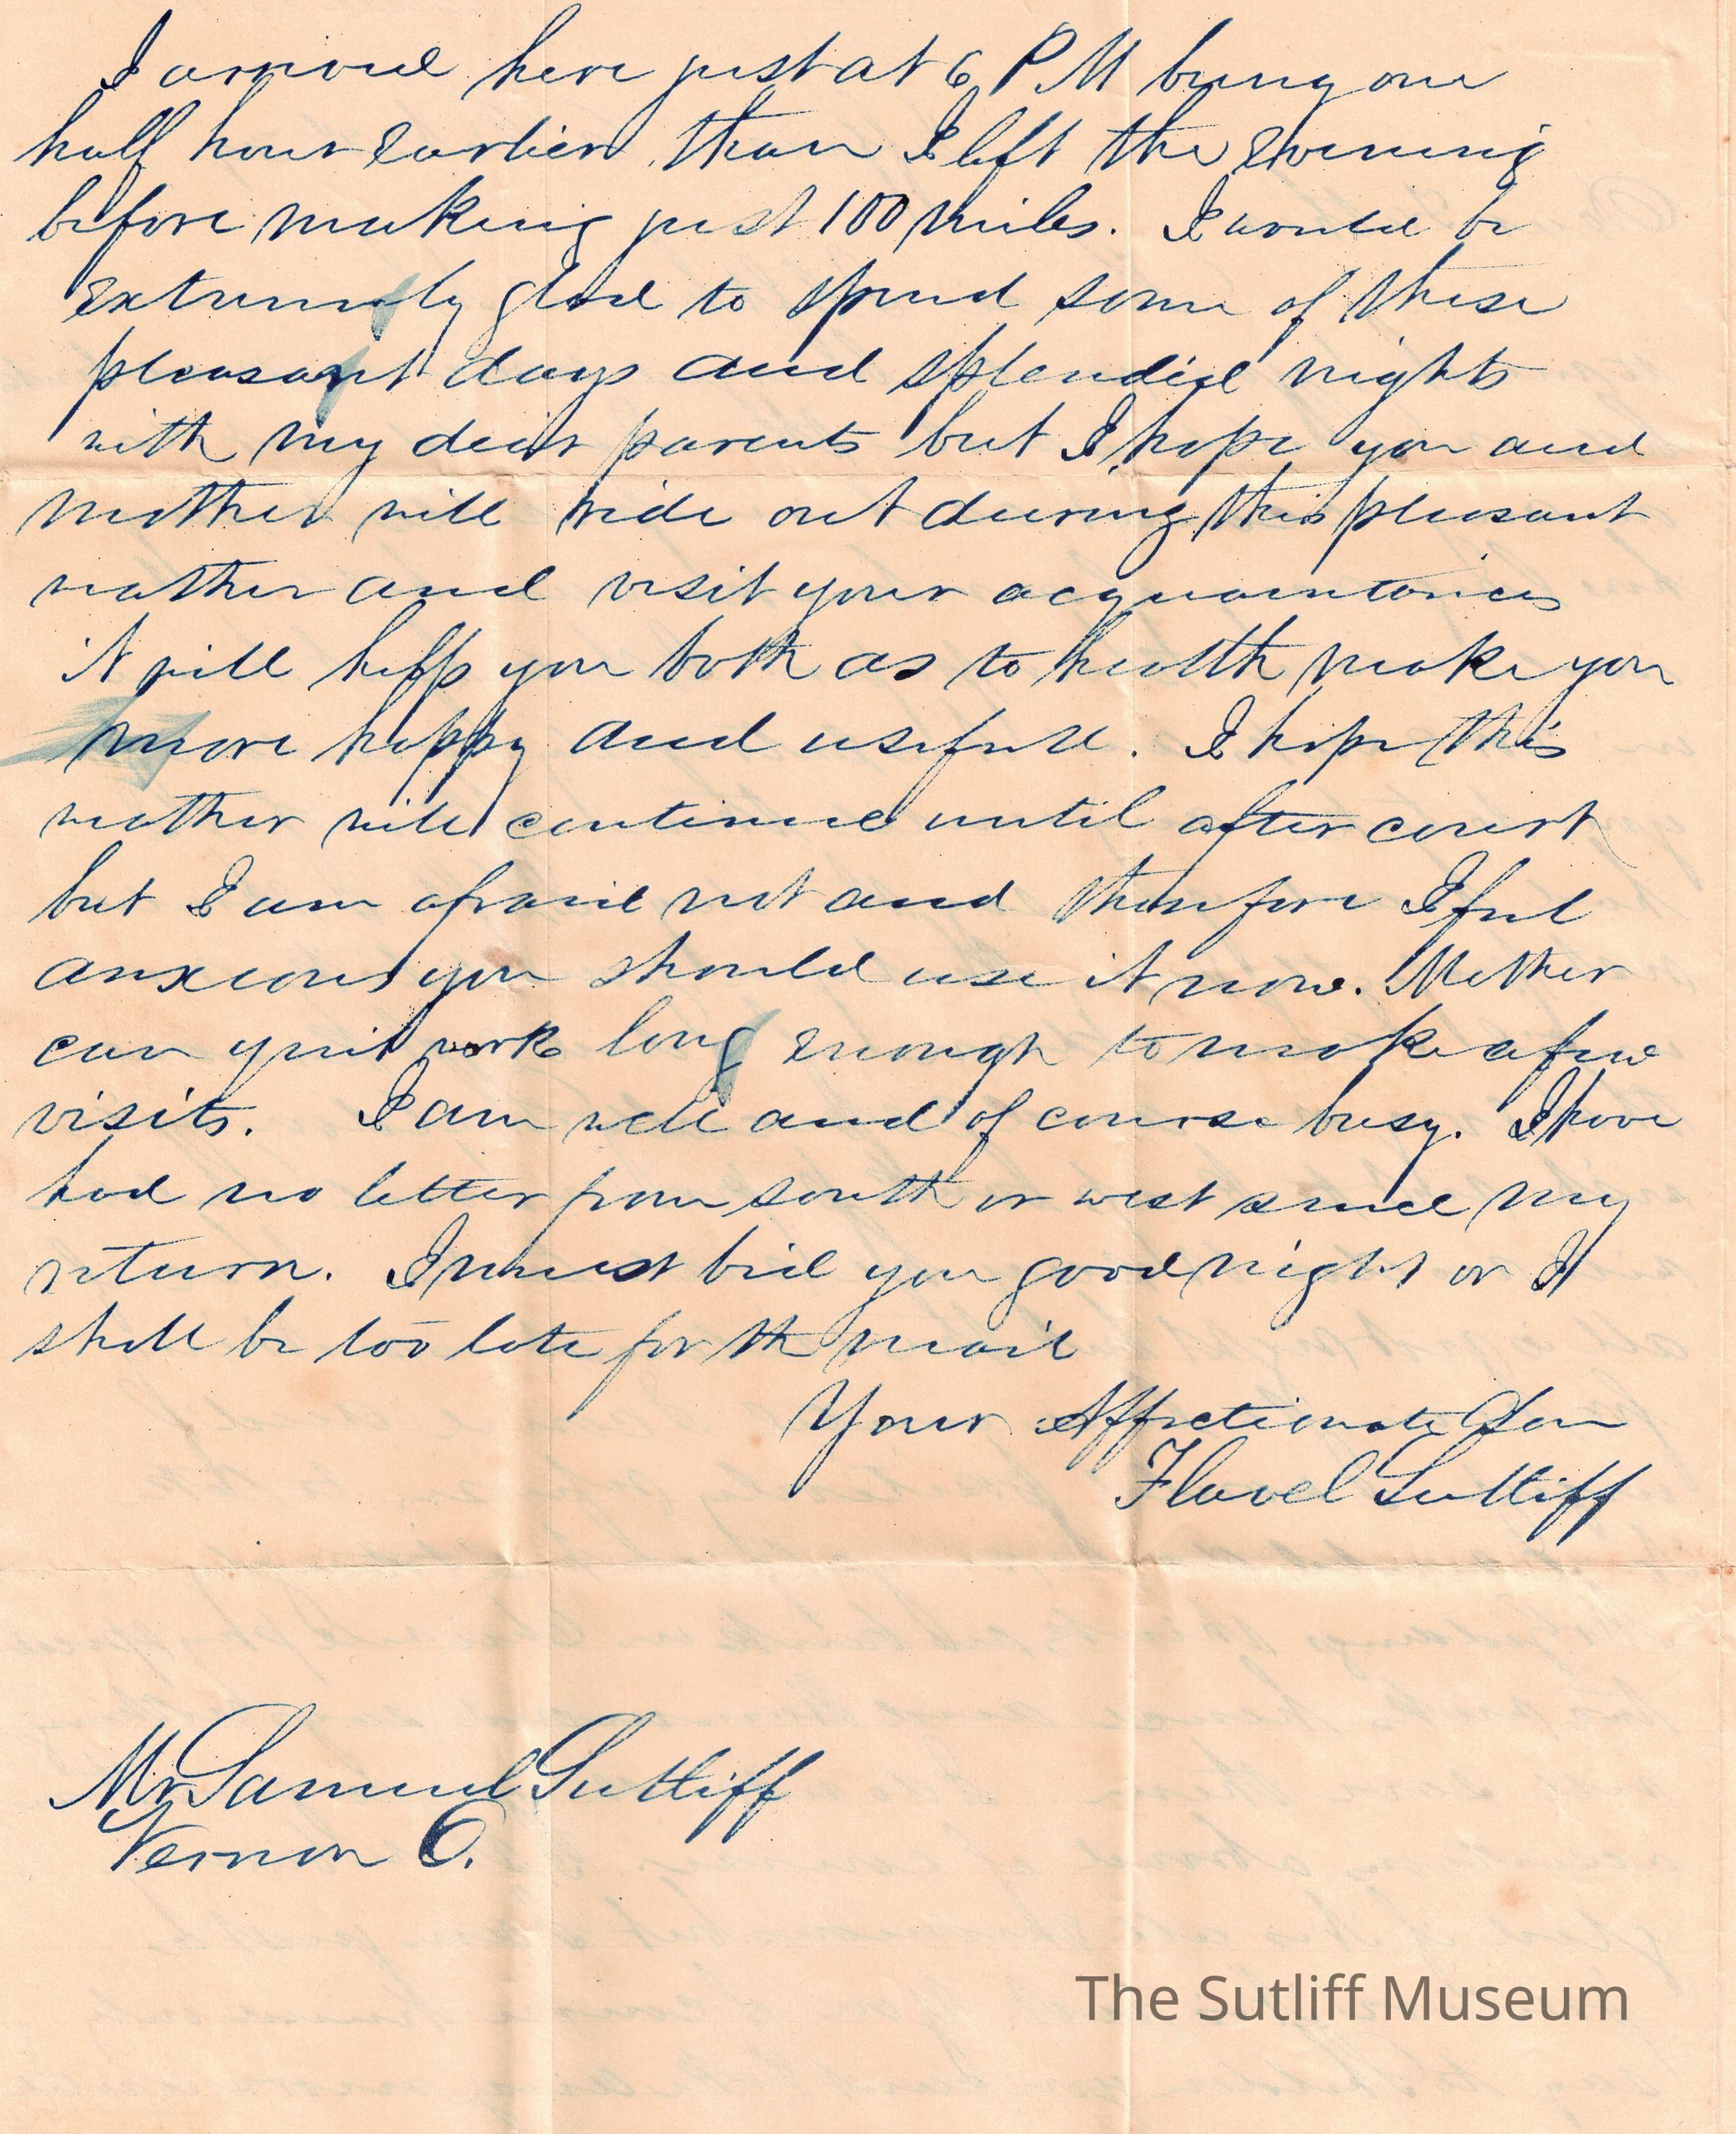 I arrived here just at 6 P M being one
half hour earlier than I left the evening
before making just 100 miles. I would be
extremely glad to spend some of these
pleasant days and splendid nights
with my dear parents but I hope you and
mother will ride out during this pleasant
weather and visit your acquaintances
it will help you both as to health make you
more happy and usefull. I hope this
weather will continue until after court
but I am afraid not and therefore I feel
anxious you should use it now. Mother
can quit work long enough to make a few
visits. I am well and of course busy. I have
had no letter from south or west since my
return. I must bid you good night or I
shall be too late for th mail
Your Affectionate Son
Flavel Sutliff
Mr Samuel Sutliff
Vernon O.
The Sutliff Museum